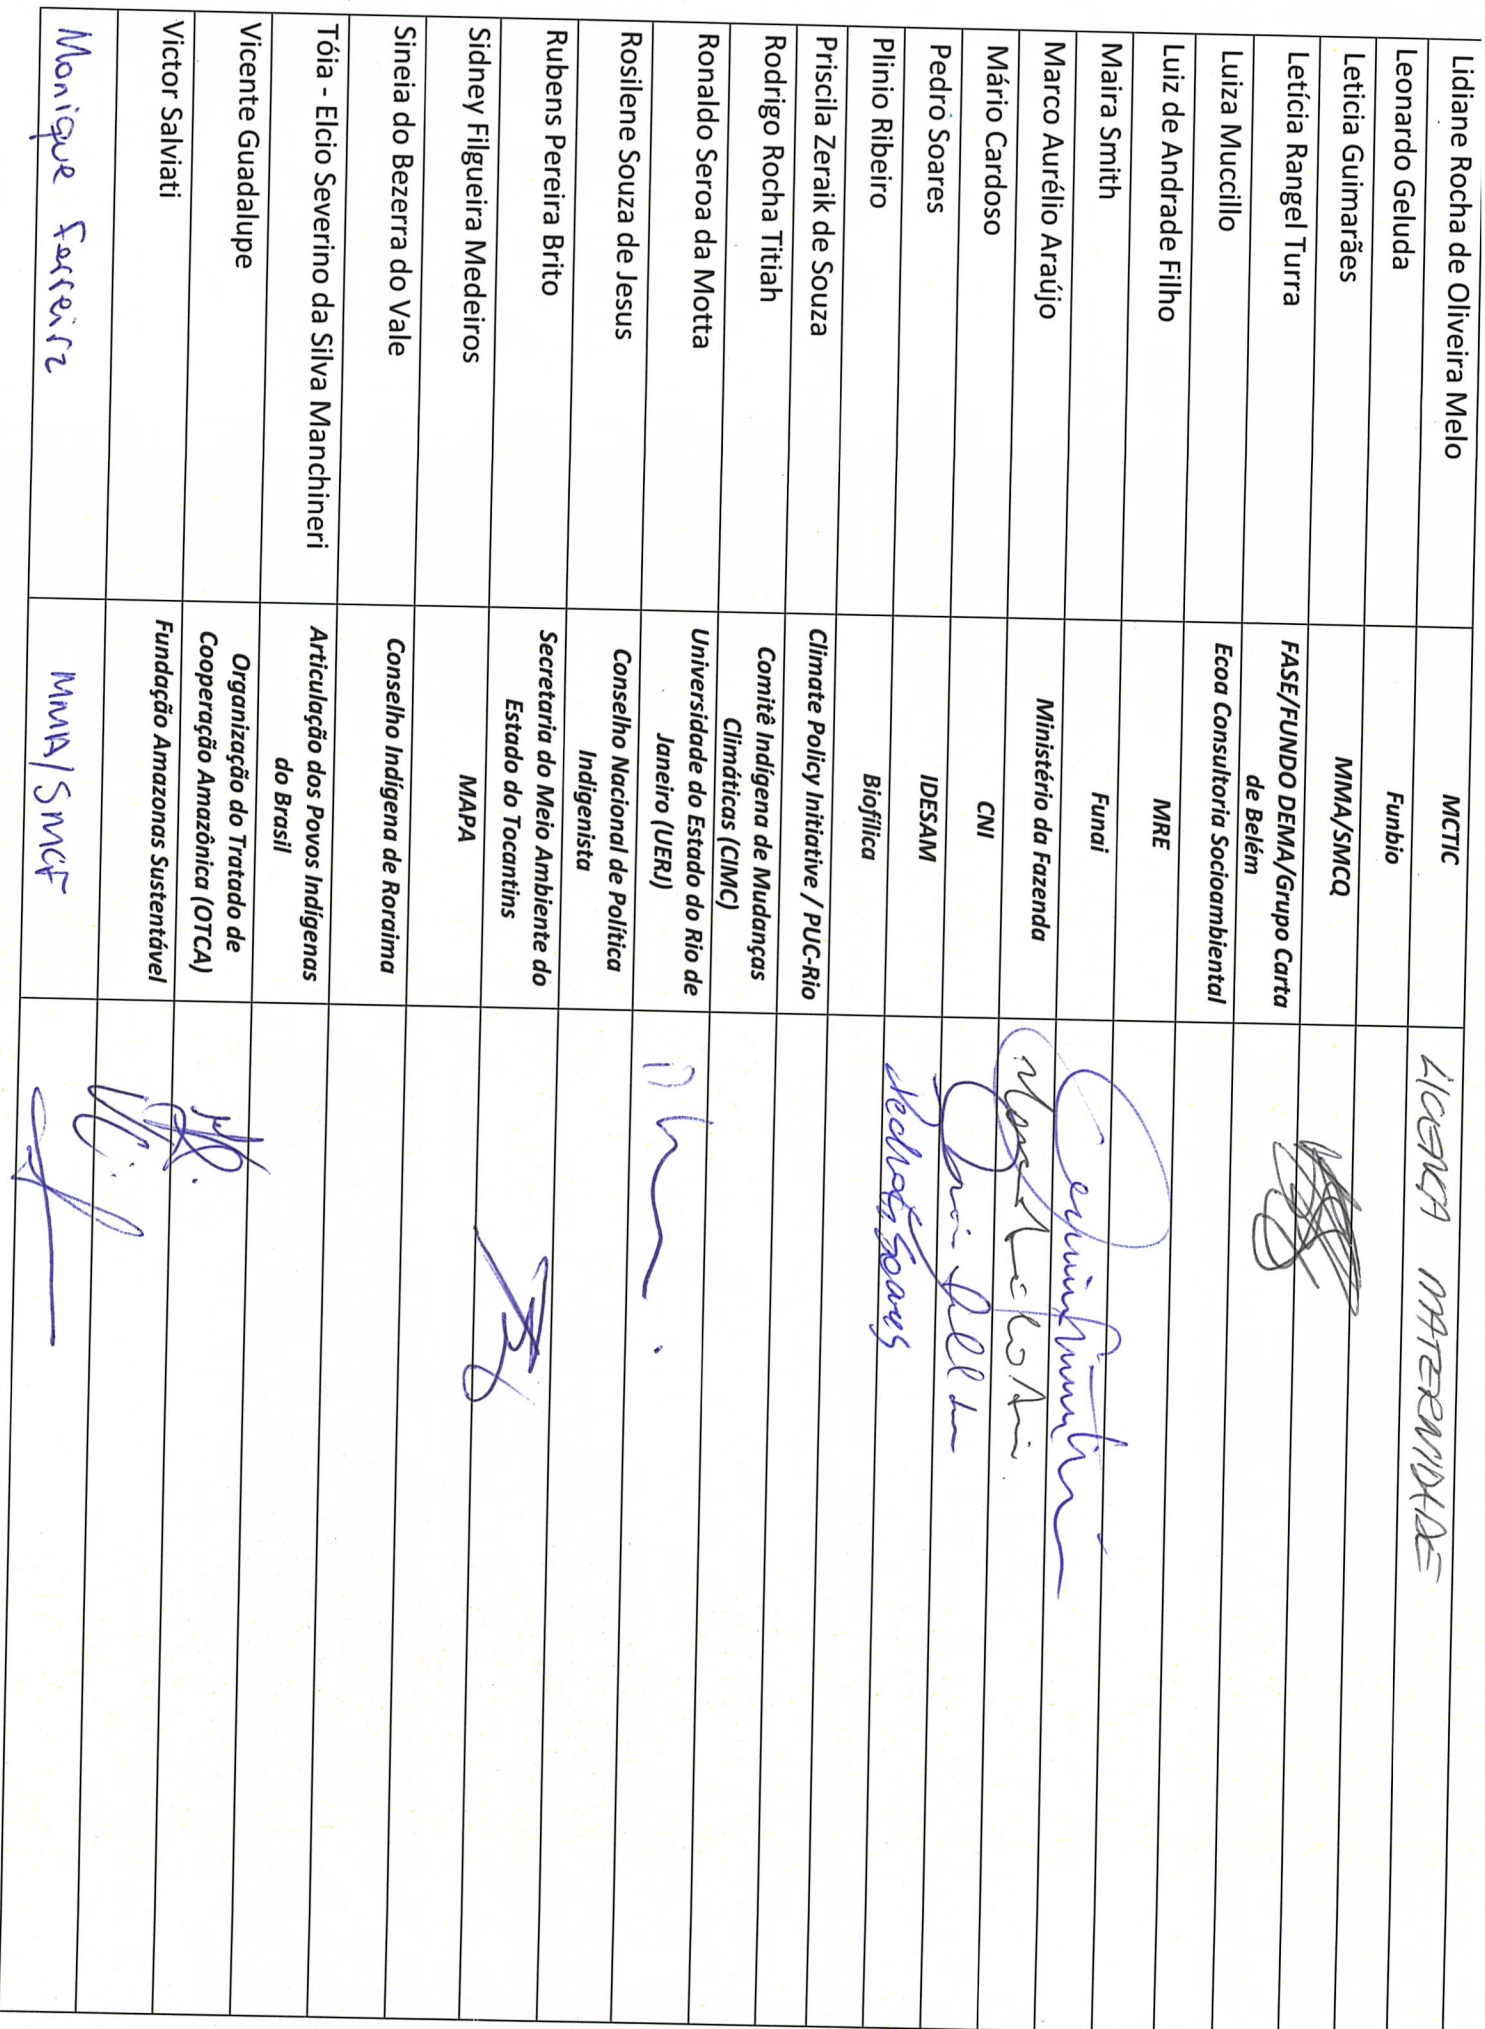 Lidiane Rocha de Oliveira Melo MCTIC LICENÇA MATERNIDADE
Leonardo Geluda Funbio
Leticia Guimarães MMA/SMCQ
Letícia Rangel Turra FASE/FUNDO DEMA/Grupo Carta
de Belém
Luiza Muccillo Ecoa Consultoria Socioambiental
Luiz de Andrade Filho MRE
Maira Smith Funai
Marco Aurélio Araújo Ministério da Fazenda
Mário Cardoso CNI
Pedro Soares IDESAM Pedro Soares
Plinio Ribeiro Biofílica
Priscila Zeraik de Souza Climate Policy Initiative / PUC-Rio
Rodrigo Rocha Titiah Comitê Indígena de Mudanças
Climáticas (CIMC)
Ronaldo Seroa da Motta Universidade do Estado do Rio de
Janeiro (UERJ)
Rosilene Souza de Jesus Conselho Nacional de Política
Indigenista
Rubens Pereira Brito Secretaria do Meio Ambiente do
Estado do Tocantins
Sidney Filgueira Medeiros MAPA
Sineia do Bezerra do Vale Conselho Indígena de Roraima
Tóia - Elcio Severino da Silva Manchineri Articulação dos Povos Indígenas
do Brasil
Vicente Guadalupe Organização do Tratado de
Cooperação Amazônica (OTCA)
Victor Salviati Fundação Amazonas Sustentável
Monique Ferreira MMA/SMCF